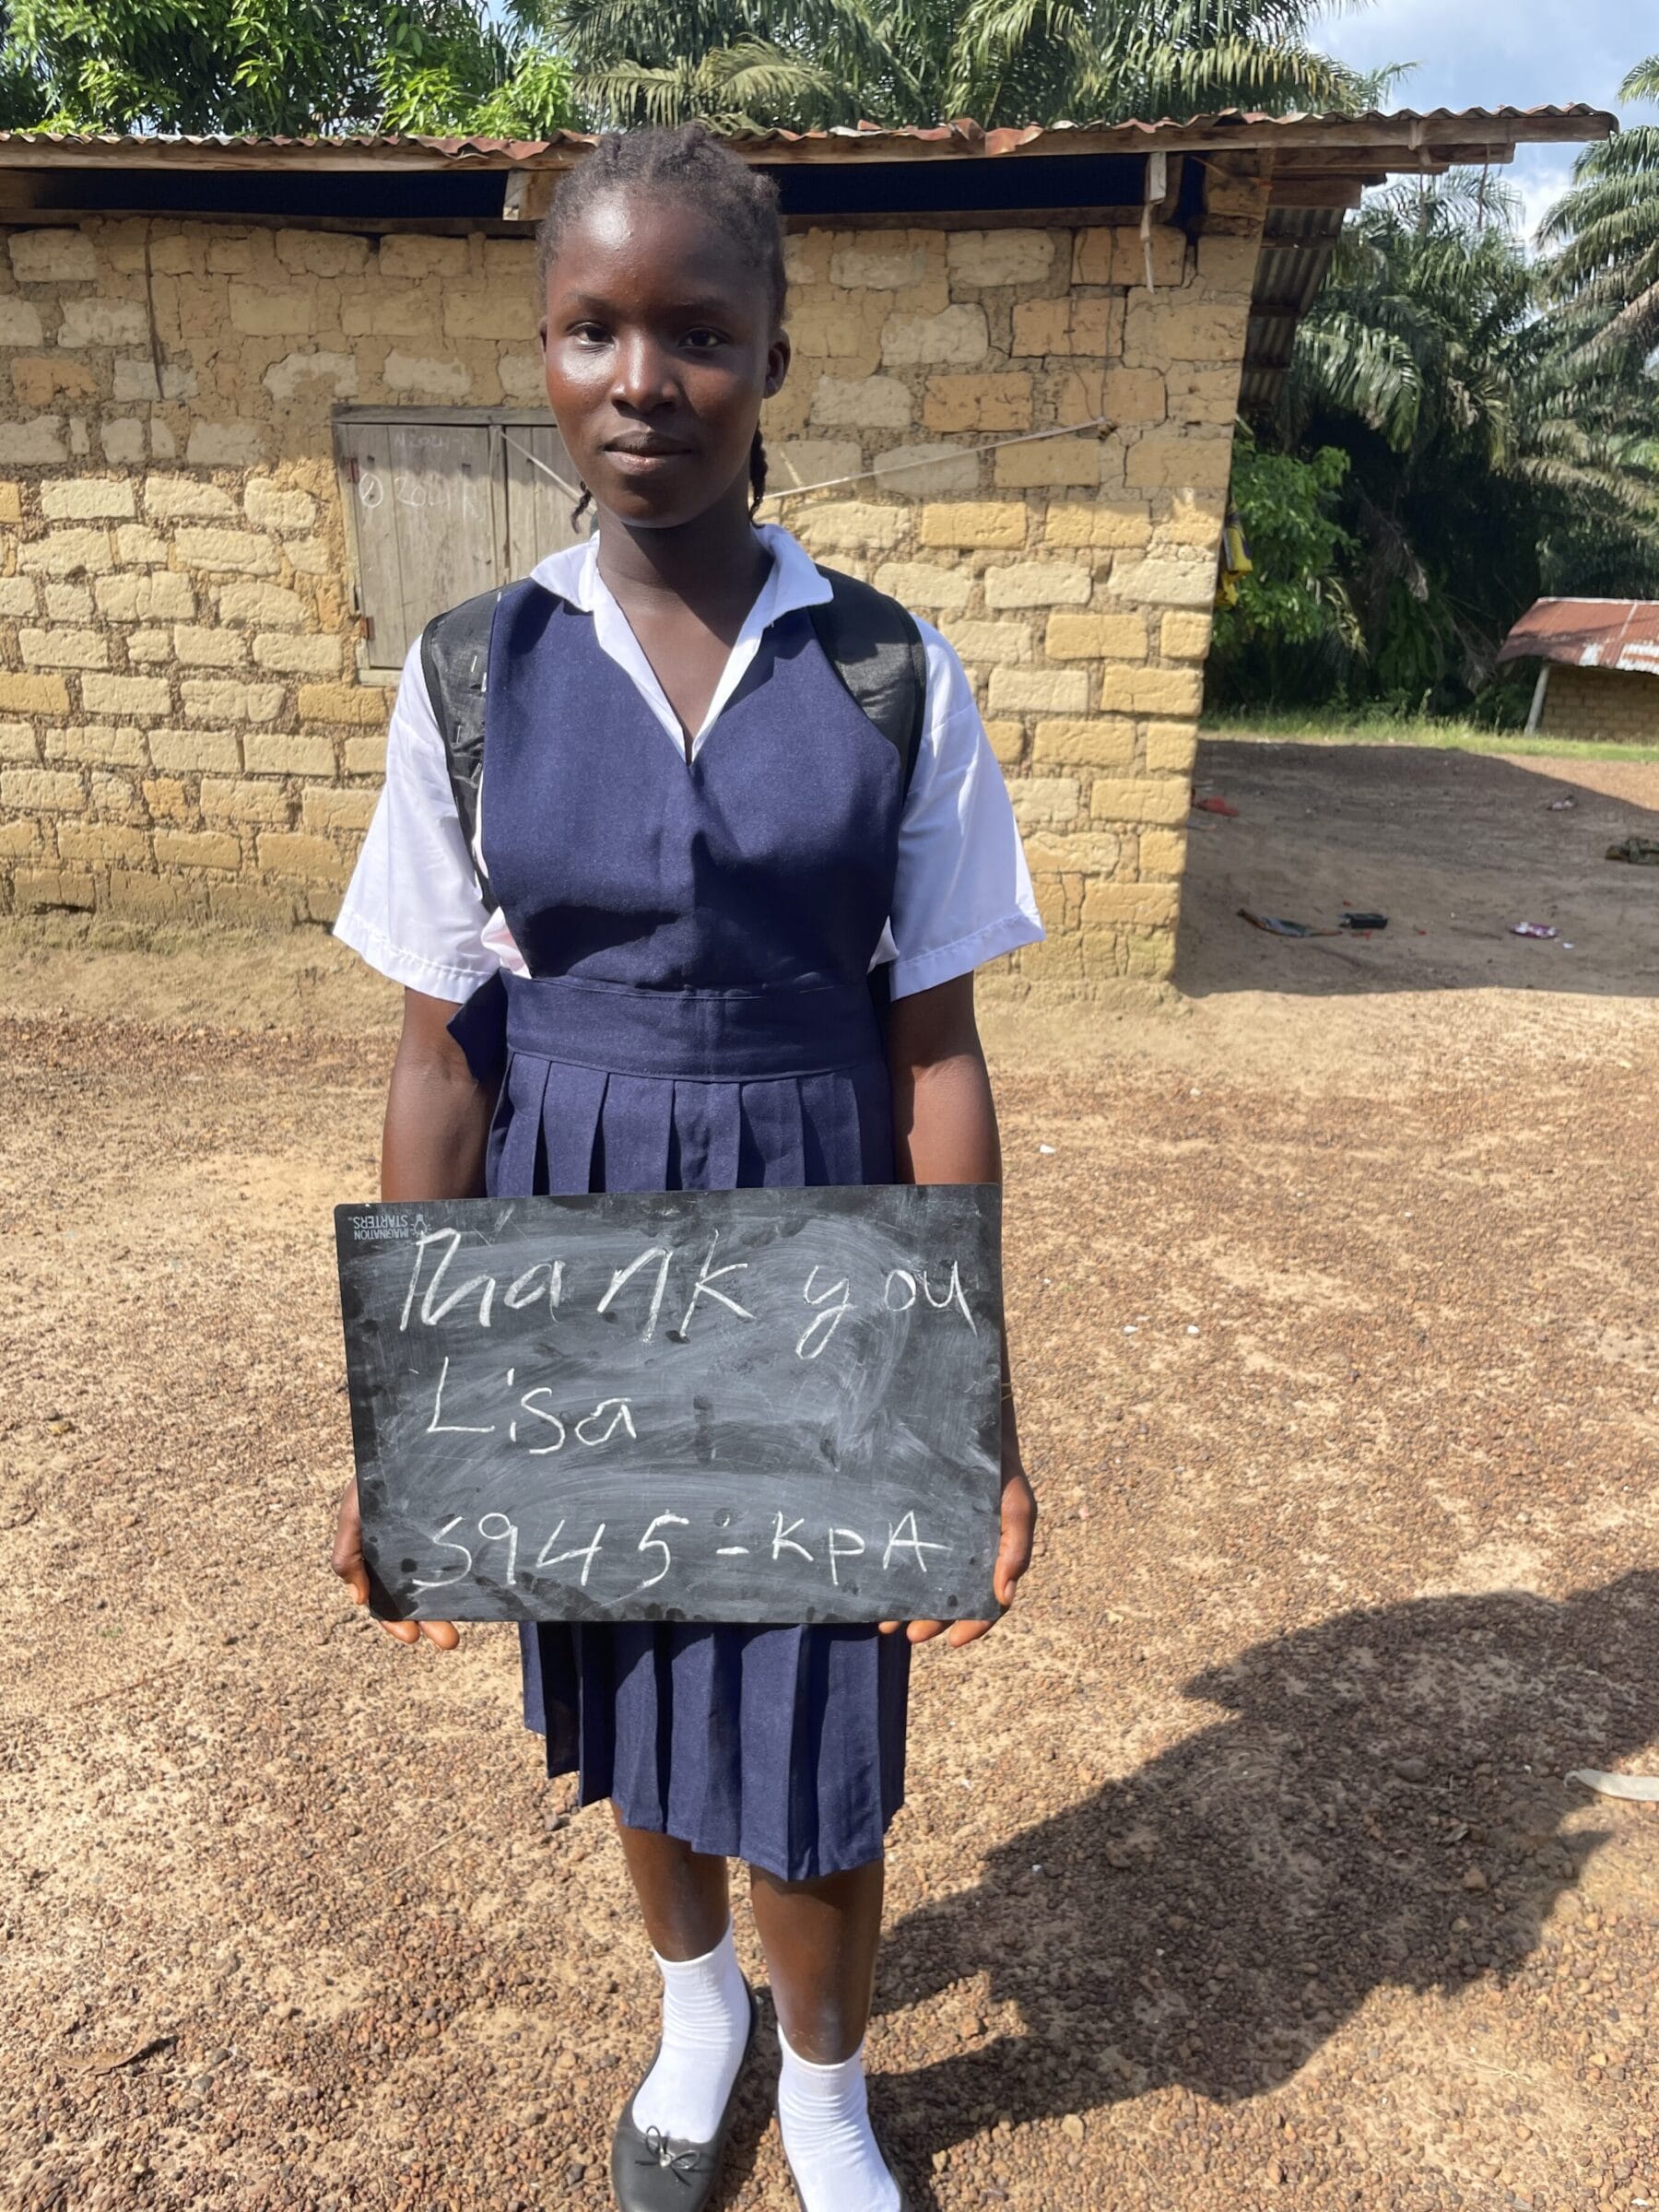 IMAGINATION
STARTERS
Thank you
Lisa
S945-KpA